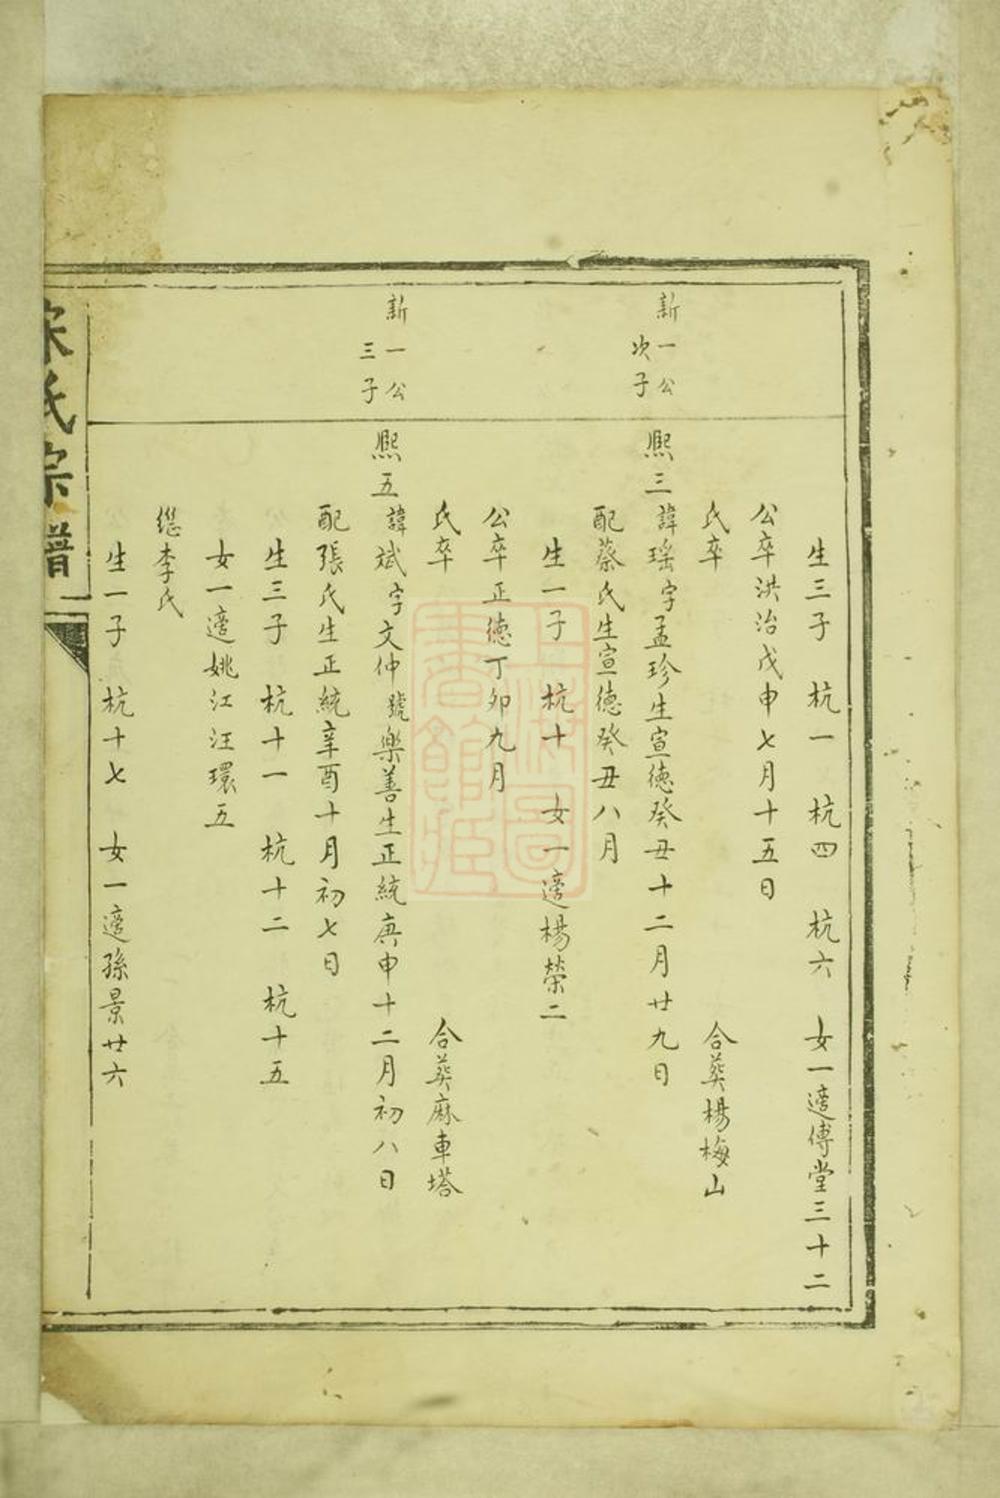 生三子 杭一 杭四 杭六 女一適傅堂三十二
公卒洪治戊申七月十五日
氏卒 合葵楊梅山
新一公
次子
熙三諱瑤字孟珍生宣德癸丑十二月廿九日
配蔡氏生宣德癸丑八月
生一子 杭十 女一適楊榮二
公卒正德丁卯九月
氏卒 合葵麻車塔
新一公
三子
熙五諱斌字文仲號樂善生正統庚申十二月初八日
配張氏生正統辛酉十月初七日
生三子 杭十一 杭十二 杭十五
女一適姚江汪環五
繼李氏
生一子 杭十七 女一適孫景廿六
宋氏宗譜
上海圖書館藏